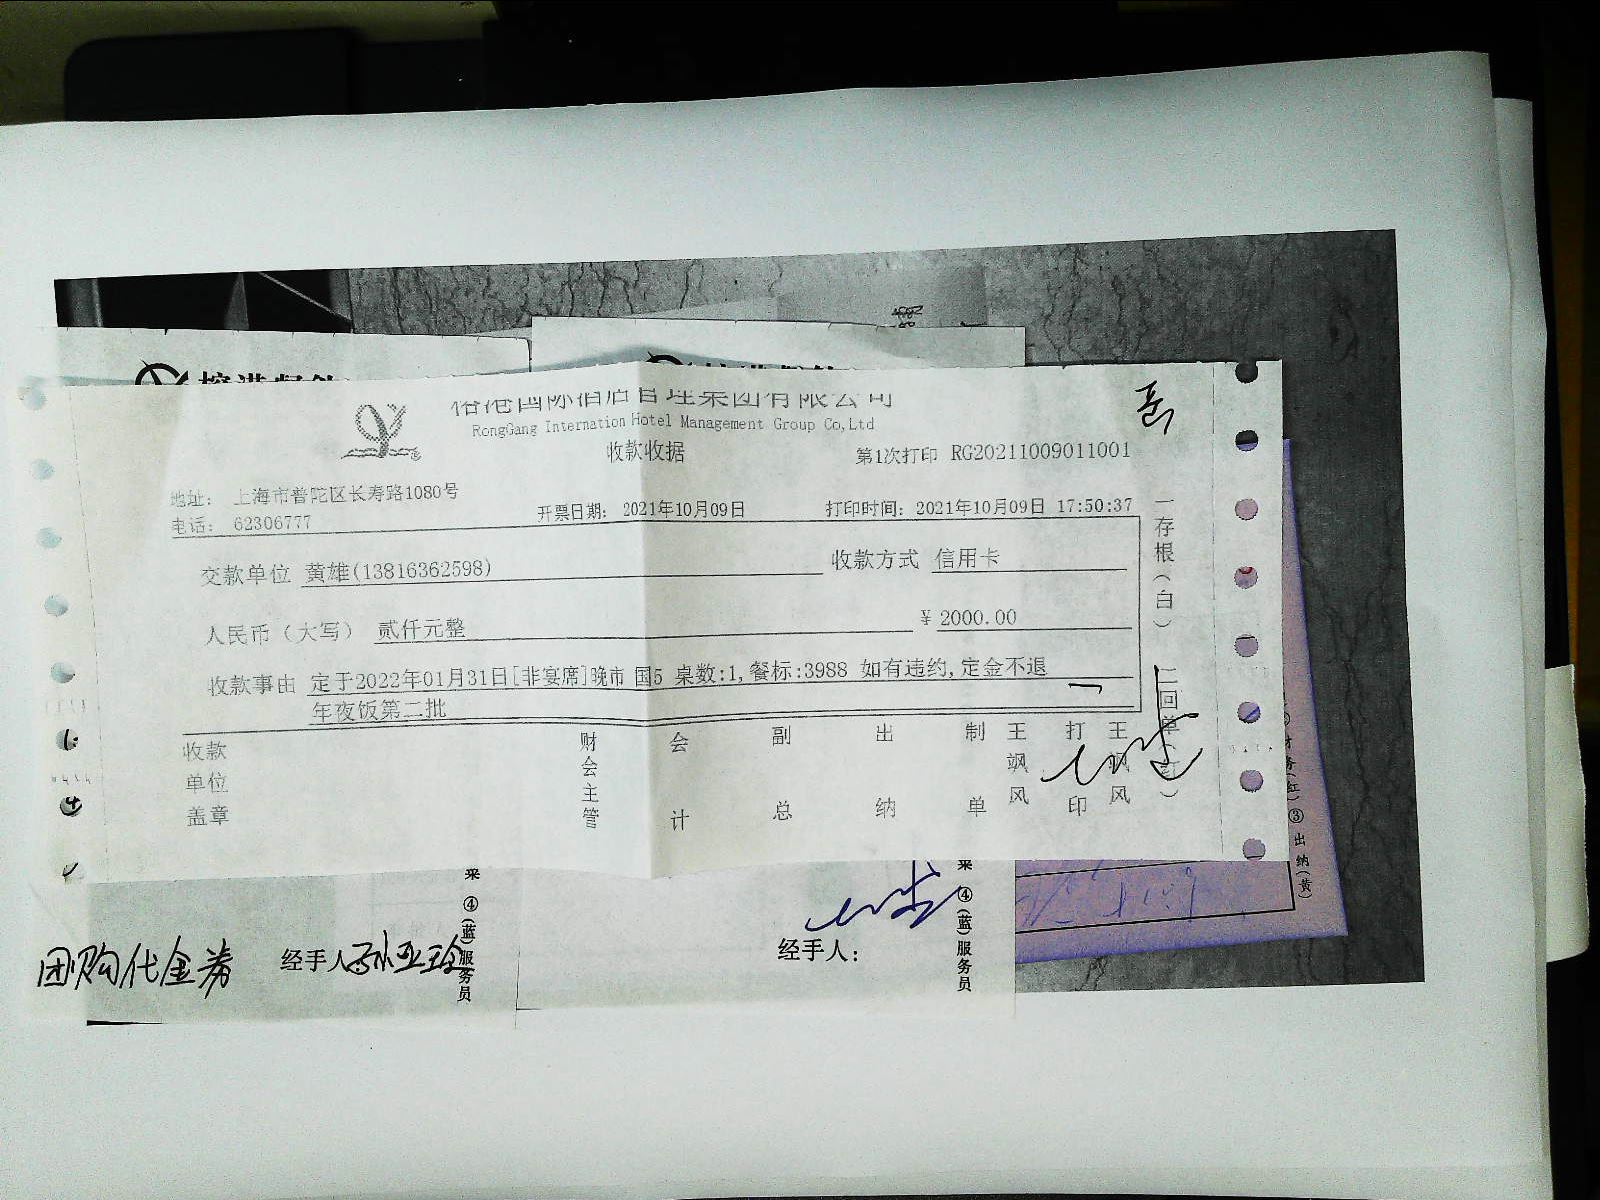 国际酒店管理集团有限公司
RongGang Internation Hotel Management Group Co,Ltd
收款收据
第1次打印 RG20211009011001
地址: 上海市普陀区长寿路1080号
电话: 62306777
开票日期: 2021年10月09日
打印时间: 2021年10月09日 17:50:37
交款单位 黄雄(13816362598)
收款方式 信用卡
人民币（大写） 贰仟元整
¥ 2000.00
收款事由 定于2022年01月31日[非宴席]晚市 国5 桌数:1,餐标:3988 如有违约,定金不退
年夜饭第二批
收款单位盖章
财会主管
会计
副总
出纳
制单
王飒风
打印
王飒风
一存根(白)
二回单(红)
菜 ④(蓝)服务员
菜 ④(蓝)服务员
务(红) ③出纳(黄)
团购代金券
经手人
经手人: